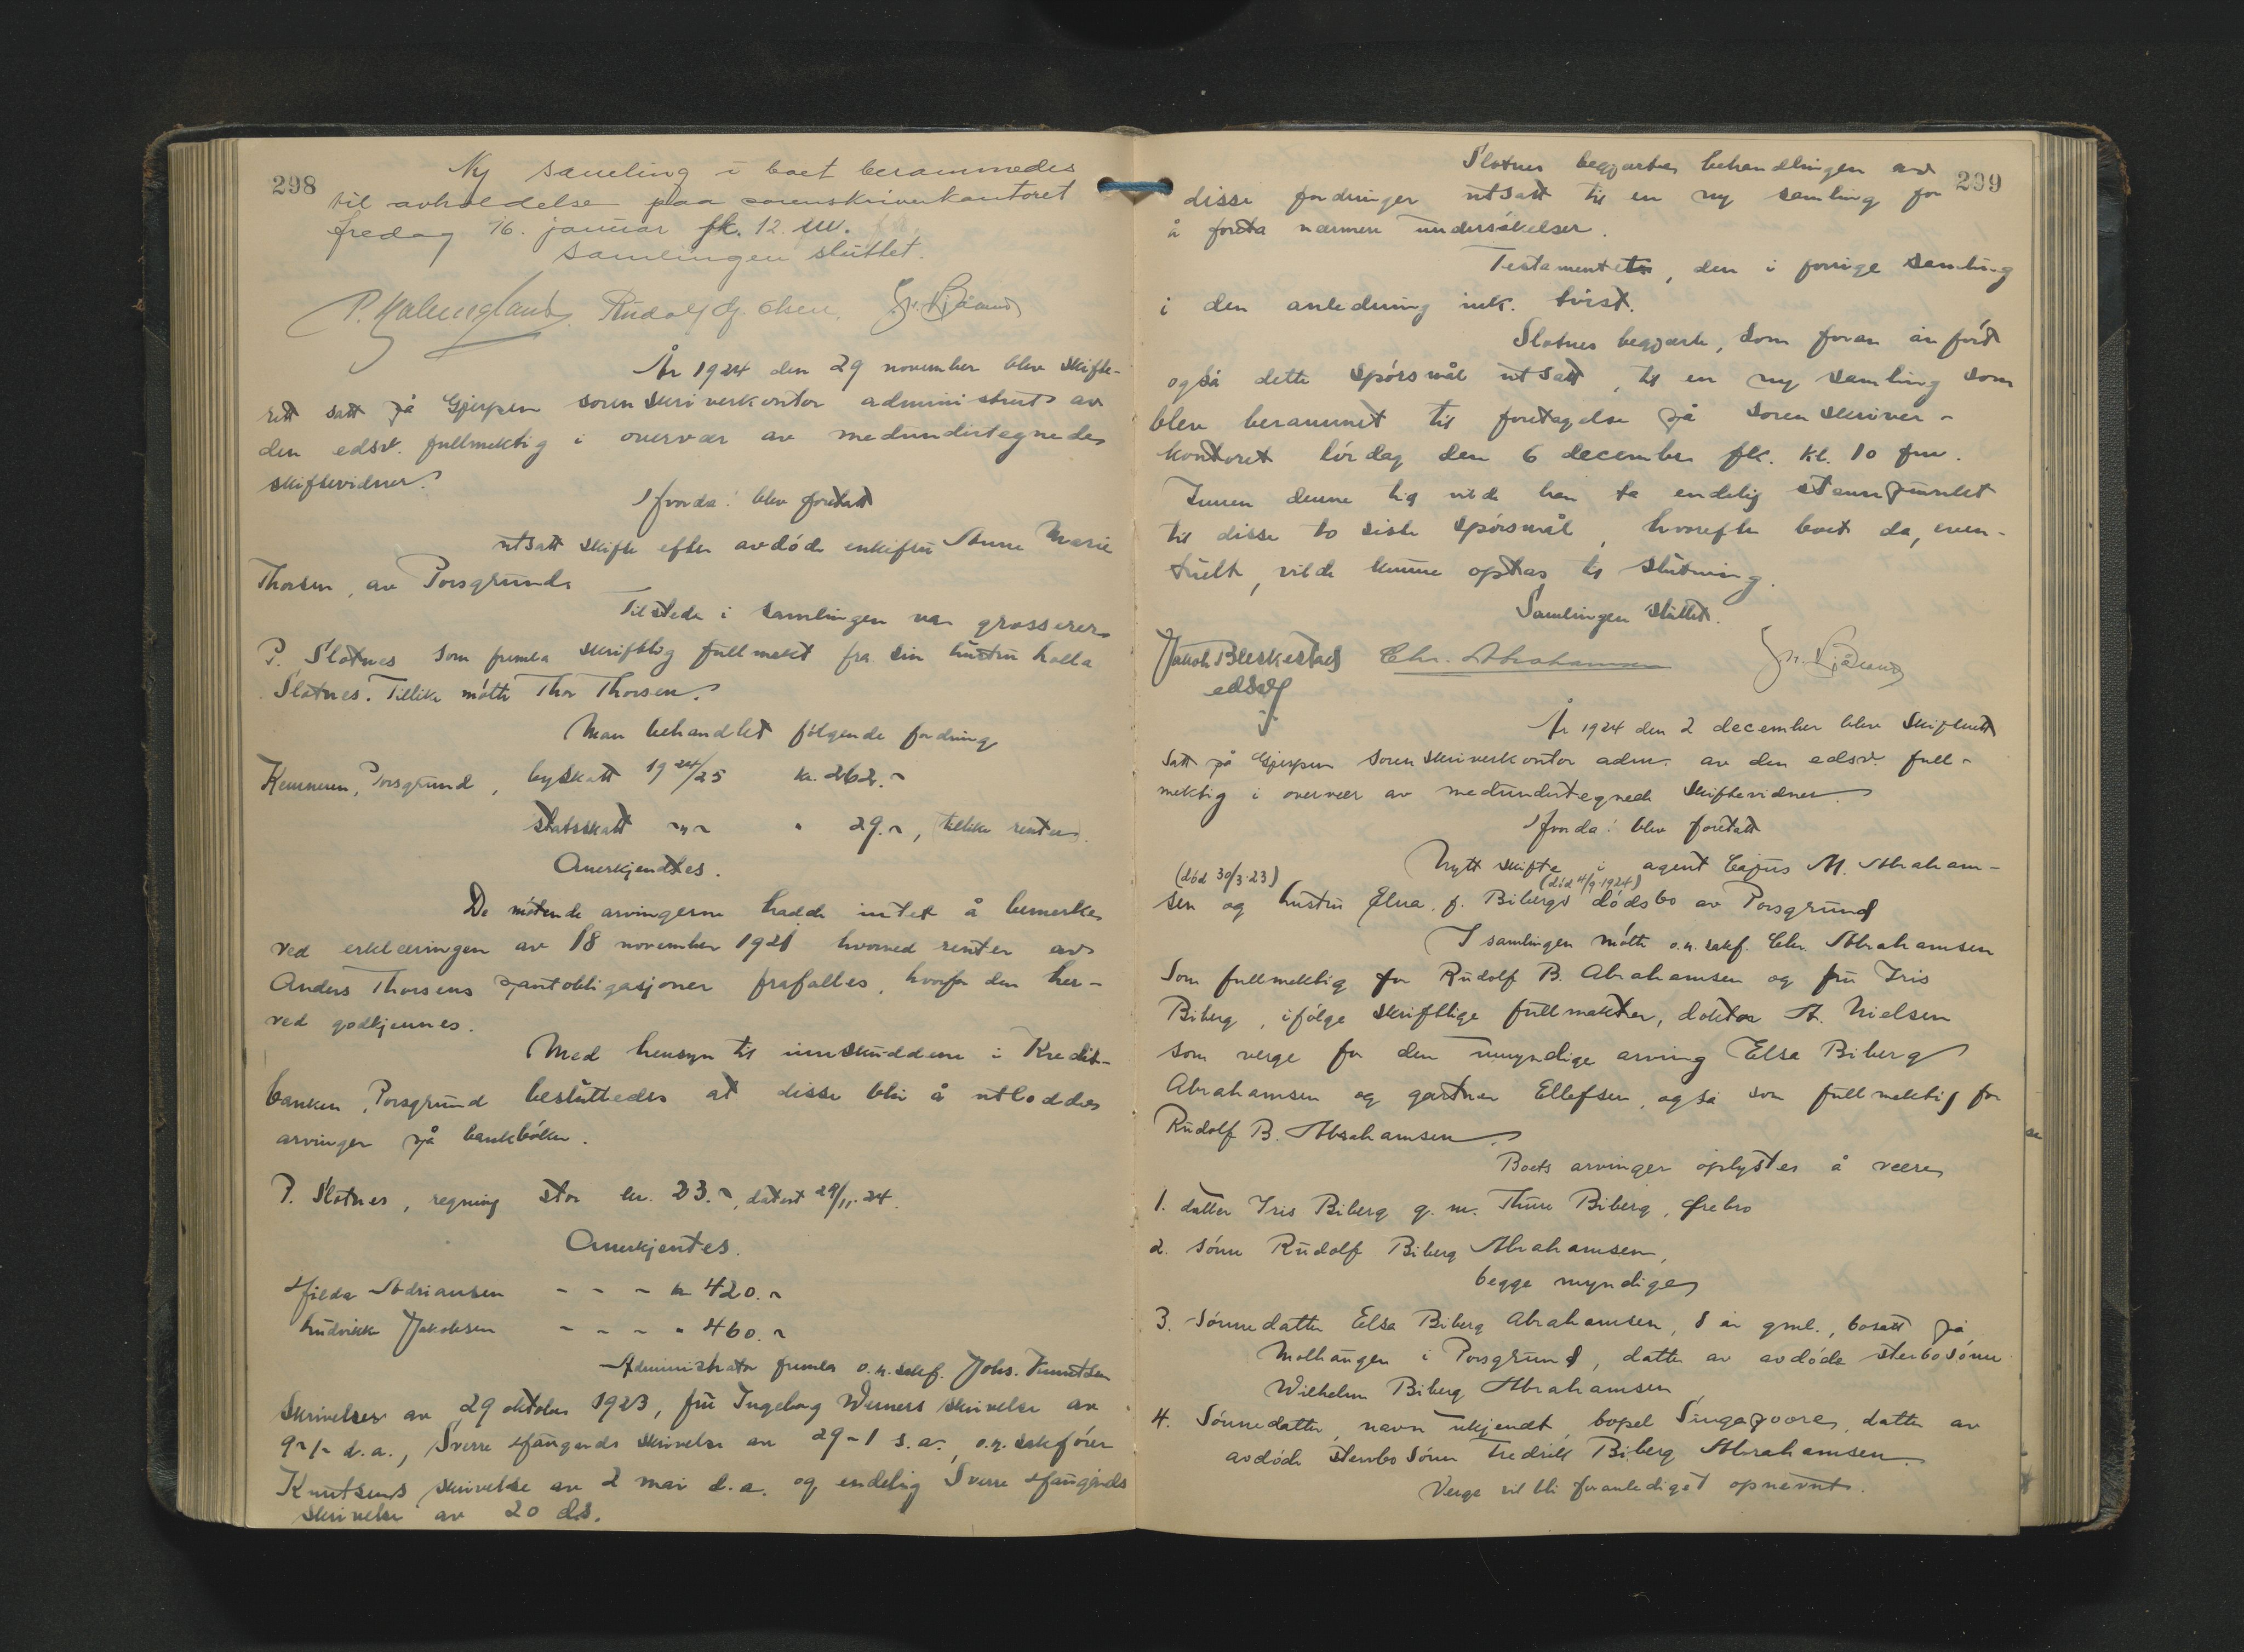 298
Ny samling i boet berammedes
til avholdelse paa sorenskriverkontoret
fredag 16. januar fk. 12 mv.
Samlingen sluttet.
Rudolf Olsen.
År 1924 den 29 november blev skifte-
rett satt på Gjerpen sorenskriverkontor administrert av
den edsv. fullmektig i overvær av medundertegnede
skiftevidner.
Hvorda: blev foretatt
utsatt skifte efter avdöde enkefru Anne Marie
Thorsen, av Porsgrund.
Tilstede i samlingen var grosserer
P. Slotnes som fremla skriftlig fullmakt fra sin hustru
Slotnes. Tillike mötte Thor Thorsen.
Man behandlet fölgende fordring
Kemneren, Porsgrund, byskatt 1924/25 kr. 262.-
statsskatt -"- " 29.-, tillike renter.
Anerkjendtes.
De mötende arvingerne hadde intet å bemerke
ved erklæringen av 18 november 1921 hvorved renter av
Anders Thorsens pantobligasjoner frafalles, hvorfor den her-
ved godkjennes.
Med hensyn til innskuddene i Kredit-
banken, Porsgrund besluttedes at disse blir å utloddes
arvinger på bankböker.
P. Slotnes, regning stor kr. 23.-, datert 29/11.24.
Anerkjentes.
Hilda Adriansen - - - kr 420.-
Ludvikke Jakobsen - - - " 460.-
Administrator fremla o.r. sakf. Johs. Knutsen
skrivelser av 29 oktober 1923, fru Ingeborg Werners skrivelse av
d.a., Sverre Haugands skrivelse av 29-1 s.a., o.r. sakförer
Knutsens skrivelse av 2 mai d.a. og endelig Sverre Haugands
skrivelse av 20 ds.
299
Slotnes begjærte behandlingen av
disse fordringer utsatt til en ny samling for
å foreta nærmere undersökelser.
Testamentet, den i forrige samling
i den anledning tvist.
Slotnes begjærte, som foran anfört
også dette spörsmål utsatt, til en ny samling som
blev berammet til foretagelse på sorenskriver-
kontoret lördag den 6 december fk. kl. 10 fm.
Innen denne tid vilde han ta endelig standpunkt
til disse to siste spörsmål, hvorefter boet da, even-
tuelt, vilde kunne optas til slutning.
Samlingen sluttet.
Jakob Bleskestad Chr. Abrahamsen
edsvf
År 1924 den 2 december blev skifterett
satt på Gjerpen sorenskriverkontor adm. av den edsv. full-
mektig i overvær av medundertegnede skiftevidner.
Hvorda: blev foretatt
Nytt skifte i agent Cajus M. Abraham-
(död 30/3.23) (död 4/9.1924)
sen og hustru Elna f. Bibergs dödsbo av Porsgrund
I samlingen mötte o.r. sakf. Chr. Abrahamsen
som fullmektig for Rudolf B. Abrahamsen og fru Iris
Biberg, ifölge skriftlige fullmakter, doktor A. Nielsen
som verge for den umyndige arving Elsa Biberg
Abrahamsen og gartner Ellefsen, også som fullmektig for
Rudolf B. Abrahamsen.
Boets arvinger oplystes å være
1. datter Iris Biberg g. m. Thure Biberg, Ørebro
2. sönn Rudolf Biberg Abrahamsen,
begge myndige
3. Sönnedatter Elsa Biberg Abrahamsen, 8 år gml., bosatt på
Molhaugen i Porsgrund, datter av avdöde stervbosönn
Wilhelm Biberg Abrahamsen
4. Sönnedatter, navn ukjendt, bopel Singapoore, datter av
avdöde stervbosönn Fredrik Biberg Abrahamsen.
Verge vil bli foranlediget opnevnt.